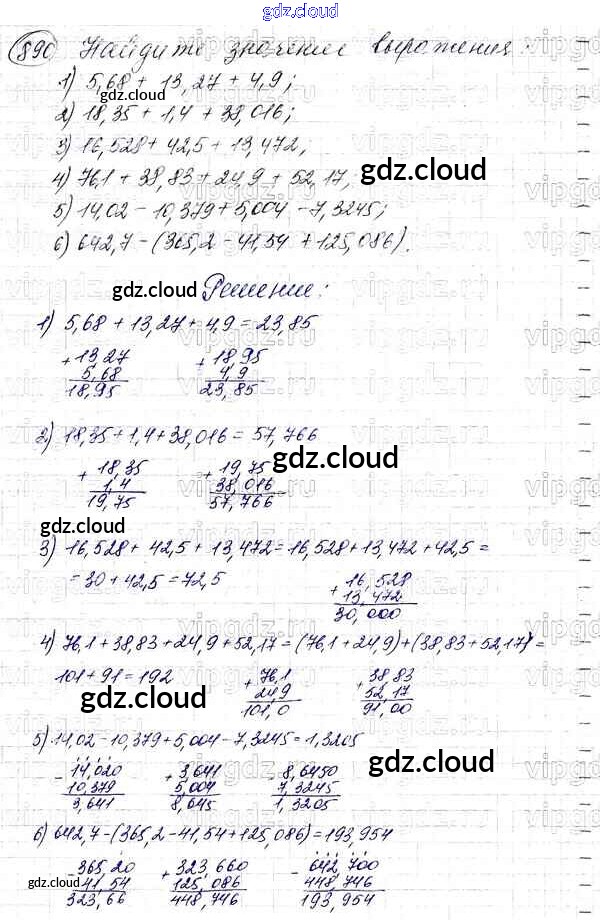 gdz.cloud
890 Найдите значение выражения:
1) 5,68 + 13,27 + 4,9;
gdz.cloud
2) 18,35 + 1,4 + 38,016;
3) 16,528 + 42,5 + 13,472;
gdz.cloud
4) 76,1 + 38,83 + 24,9 + 52,17;
5) 14,02 - 10,379 + 5,004 - 7,3245;
6) 642,7 - (365,2 - 41,54 + 125,086).
gdz.cloud Решение:
1) 5,68 + 13,27 + 4,9 = 23,85
+ 13,27 + 18,95
5,68 4,9
18,95 23,85
gdz.cloud
2) 18,35 + 1,4 + 38,016 = 57,766
gdz.cloud
+ 18,35 + 19,75
1,4 38,016
19,75 57,766
gdz.cloud
3) 16,528 + 42,5 + 13,472 = 16,528 + 13,472 + 42,5 =
= 30 + 42,5 = 72,5 + 16,528
13,472
30,000
4) 76,1 + 38,83 + 24,9 + 52,17 = (76,1 + 24,9) + (38,83 + 52,17) =
101 + 91 = 192 + 76,1 + 38,83
24,9 52,17
101,0 91,00
gdz.cloud
5) 14,02 - 10,379 + 5,004 - 7,3245 = 1,3205
gdz.cloud
- 14,020 + 3,641 - 8,6450
10,379 5,004 7,3245
3,641 8,645 1,3205
6) 642,7 - (365,2 - 41,54 + 125,086) = 193,954
- 365,20 + 323,660 - 642,700
gdz.cloud 41,54 125,086 448,746 gdz.cloud
323,66 448,746 193,954